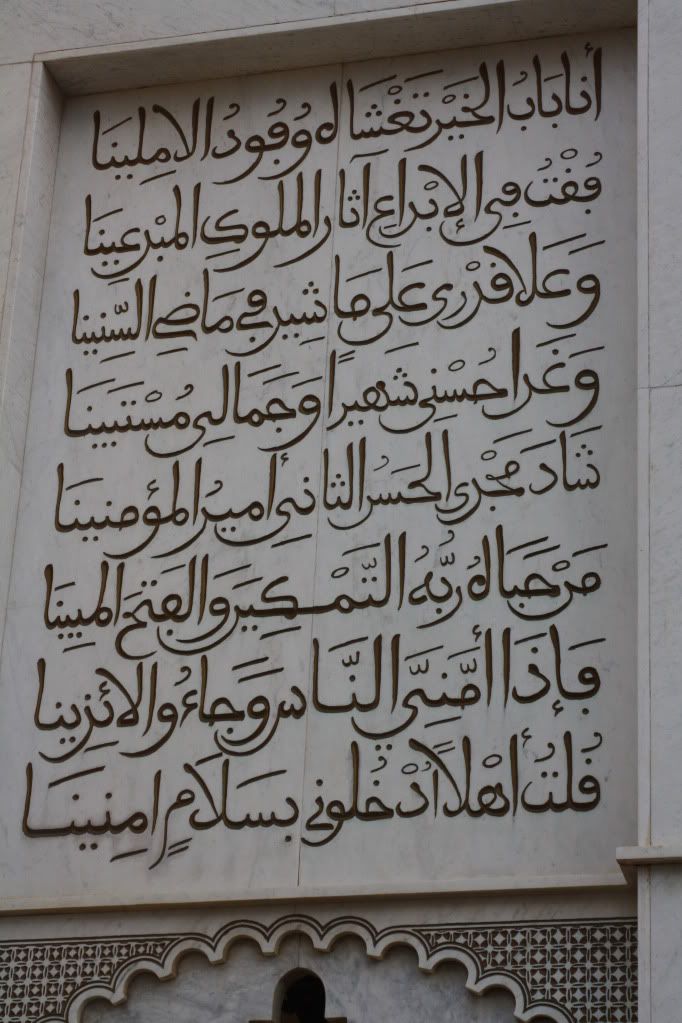 أنا بَابُ الخَيْرِ تَغْشَاه وُفُودُ الامِلِينَا
فُقْتُ فِي الإبْدَاعِ آثار الملُوكِ المبْدِعينَا
وَعَلا قَدْرِي عَلى مَا شِيدَ فِي مَاضِي السِّنِينا
وَغَدا حُسْنِي شَهيراً وَجَمَالِي مُسْتَبينَا
شَادَ مَجْدِي الحَسَنُ الثانِي أميرُ المؤمنينَا
مَنْ حَبَاهُ رَبُّهُ التَّمْكِينَ وَالفَتْحَ المبِينَا
فَإذَا أمَّنِي النَّاسُ وَجَاءُوا لائِذِينا
قُلتُ أهْلاً اُدْخُلونِي بسَلَامٍ امِنِينَا